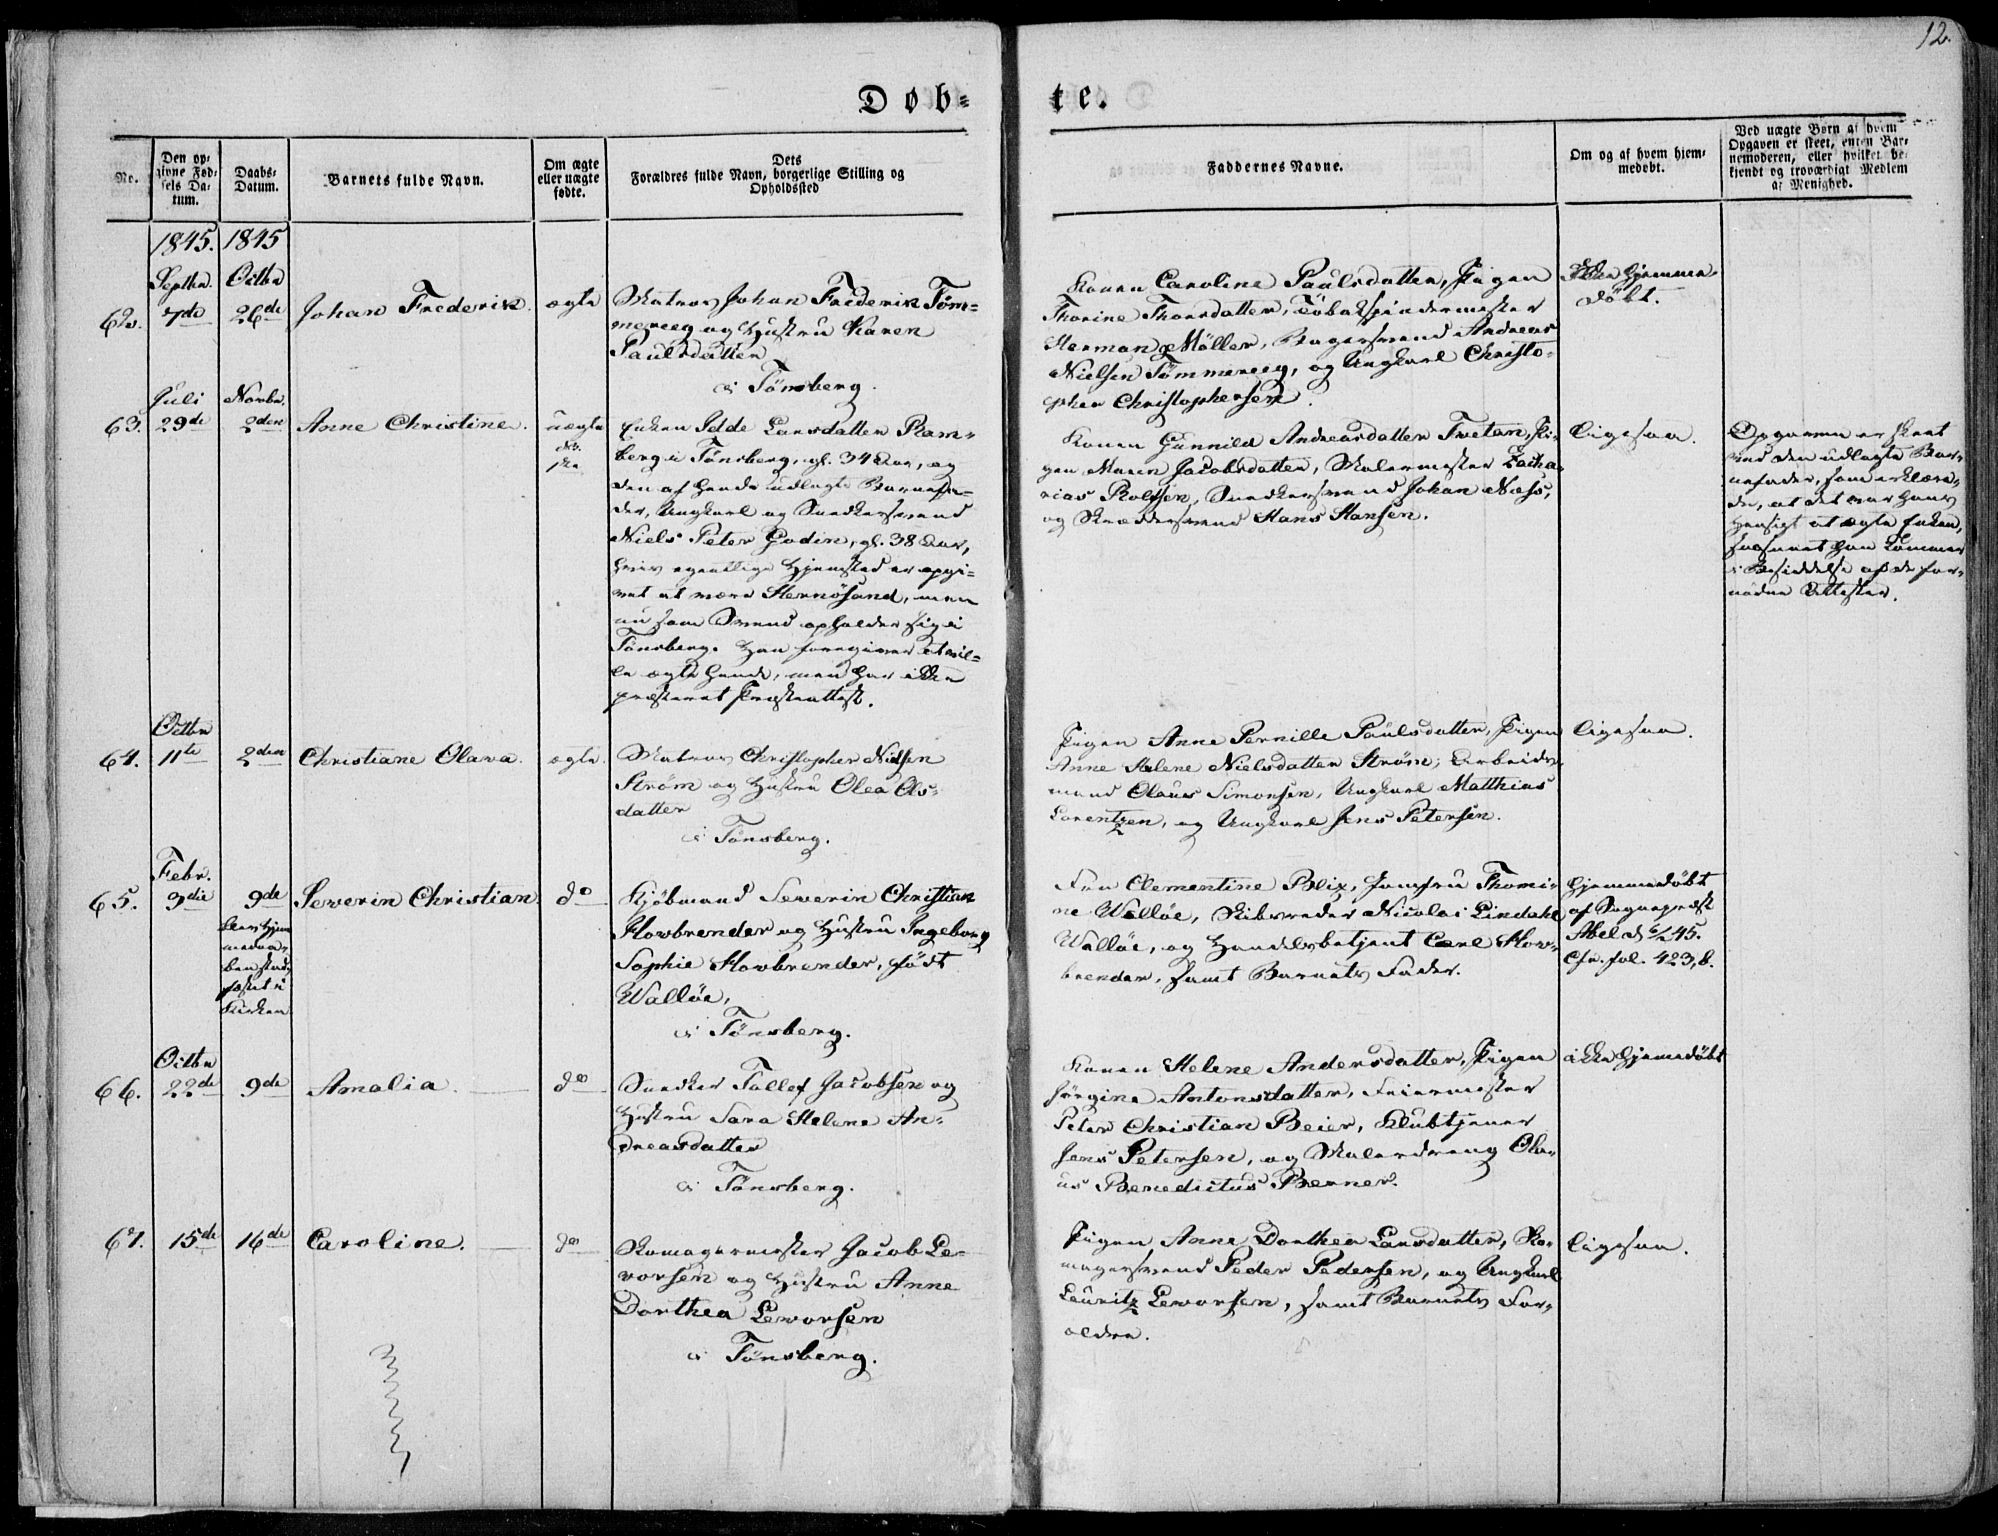 12.
Døb=
te.
No.
Den op=
givne Fød=
sels Da=
tum.
Daabs=
Datum.
Barnets fulde Navn.
Om ægte
eller uægte
fødte.
Dets
Forældres fulde Navn, borgerlige Stilling og
Opholdssted
Faddernes Navne.
Om og af hvem hjem=
medøbt.
Ved uægte Børn af hvem
Opgaven er skeet, enten Bar=
nemoderen, eller hvilket be=
kjendt og troværdigt Medlem
af Menighed.
1845. 1845
Septbr. Octbr
62. 7de 26de Johan Frederik. ægte
Matros Johan Frederik Töm=
mereeg og Hustru Karen
Paulsdatter
i Tönsberg.
Konen Caroline Paulsdatter, Pigen
Thorine Thorsdatter, Tobakspindermester
Herman Möller, Bagersvend Andreas
Nielsen Tömmereeg, og Ungkarl Christo=
pher Christophersen.
Ikke hjemme=
döbt.
Juli Novbr.
63. 29de 2den Anne Christine. uægte
Enken Idde Larsdatter Ram=
berg i Tönsberg, gl. 34 Aar, og
den af hende udlagte Barnefa=
der, Ungkarl og Snedkersvend
Niels Peter Godin, gl. 38 Aar,
hvis egentlige Hjemsted er opgi=
vet at være Hernösand, men
nu som Svend opholder sig i
Tönsberg. Han foregiver at vil=
le ægte hende, men har ikke
præsteret Præsteattest.
Konen Gunnild Andreasdatter Tvetan, Pi=
gen Maren Jacobsdatter, Malermester Zacha=
rias Rolfsen, Snedkersvend Johan Næss,
og Skræddersvend Hans Hansen.
ligesaa.
Opgaven er skeet
ved den udlagte Bar=
nefader, som erklære=
de, at det var hans
Hensigt at ægte Enken,
saasnart han kommer
i Besiddelse af de for=
nødne Attester.
Octbr
64. 11te 2den Christiane Olava. ægte.
Matros Christopher Nielsen
Ström og Hustru Olea Ols=
datter
i Tönsberg.
Pigen Anne Pernille Paulsdatter, Pigen
Anne Helene Nielsdatter Ström, Arbeids=
mand Olaus Simonsen, Ungkarl Matthias
Lorentzen, og Ungkarl Jens Petersen.
ligesaa.
Febr.
65. 9die 9de Severin Christian. do
Kjöbmand Severin Christian
Howbrender og Hustru Ingeborg
Sophie Howbrender, født
Wallöe,
i Tönsberg.
Kirken
Fru Clementine Blix, Jomfru Thomi=
ne Wallöe, Skibsreder Nicolai Lindahl
Wallöe, og Handelsbetjent Carl How=
brender, samt Barnets Fader.
Hjemmedöbt
af Sognepræst
Abel d. 6/2 45.
Cfr. fol. 423, b.
Octbr
66. 22de 9de Amalia. do
Snedker Tollef Jacobsen og
Hustru Sara Helene An=
dreasdatter
i Tönsberg.
Konen Helene Andersdatter, Pigen
Jörgine Antonsdatter, Feiermester
Peter Christian Beier, Klubtjener
Jens Petersen, og Malerdreng Ola=
us Benedictus Berner.
ikke hjemedöbt
67. 15de 16de Caroline. do
Skomagermester Jacob Le=
vorsen og Hustru Anne
Dorthea Levorsen
i Tönsberg.
Pigen Anne Dorthea Larsdatter, Sko=
magersvend Peder Pedersen, og Ungkarl
Lauritz Levorsen, samt Barnets For=
ældre.
ligesaa.